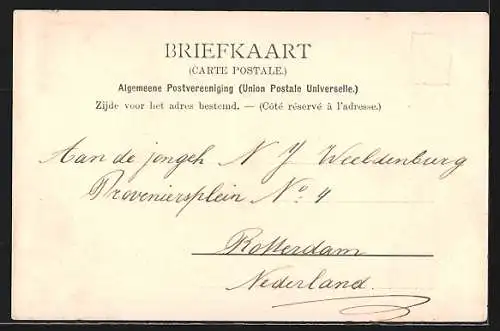 BRIEFKAART
(CARTE POSTALE.)
Algemeene Postvereeniging (Union Postale Universelle.)
Zijde voor het adres bestemd. — (Côté réservé à l'adresse.)
Aan de jongeh N J Weeldenburg
Proveniersplein No 4
Rotterdam
Nederland.